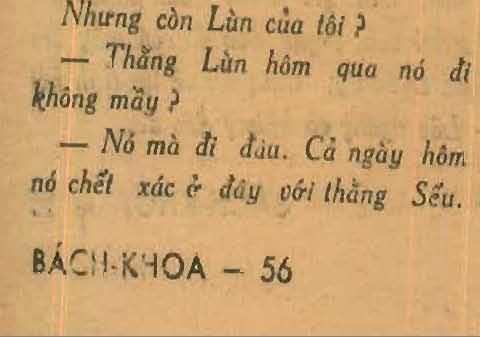 Nhưng còn Lùn của tôi ?
— Thằng Lùn hôm qua nó đi
không mầy ?
— Nó mà đi đâu. Cả ngày hôm
nó chết xác ở đây với thằng Sếu.
BÁCH-KHOA — 56